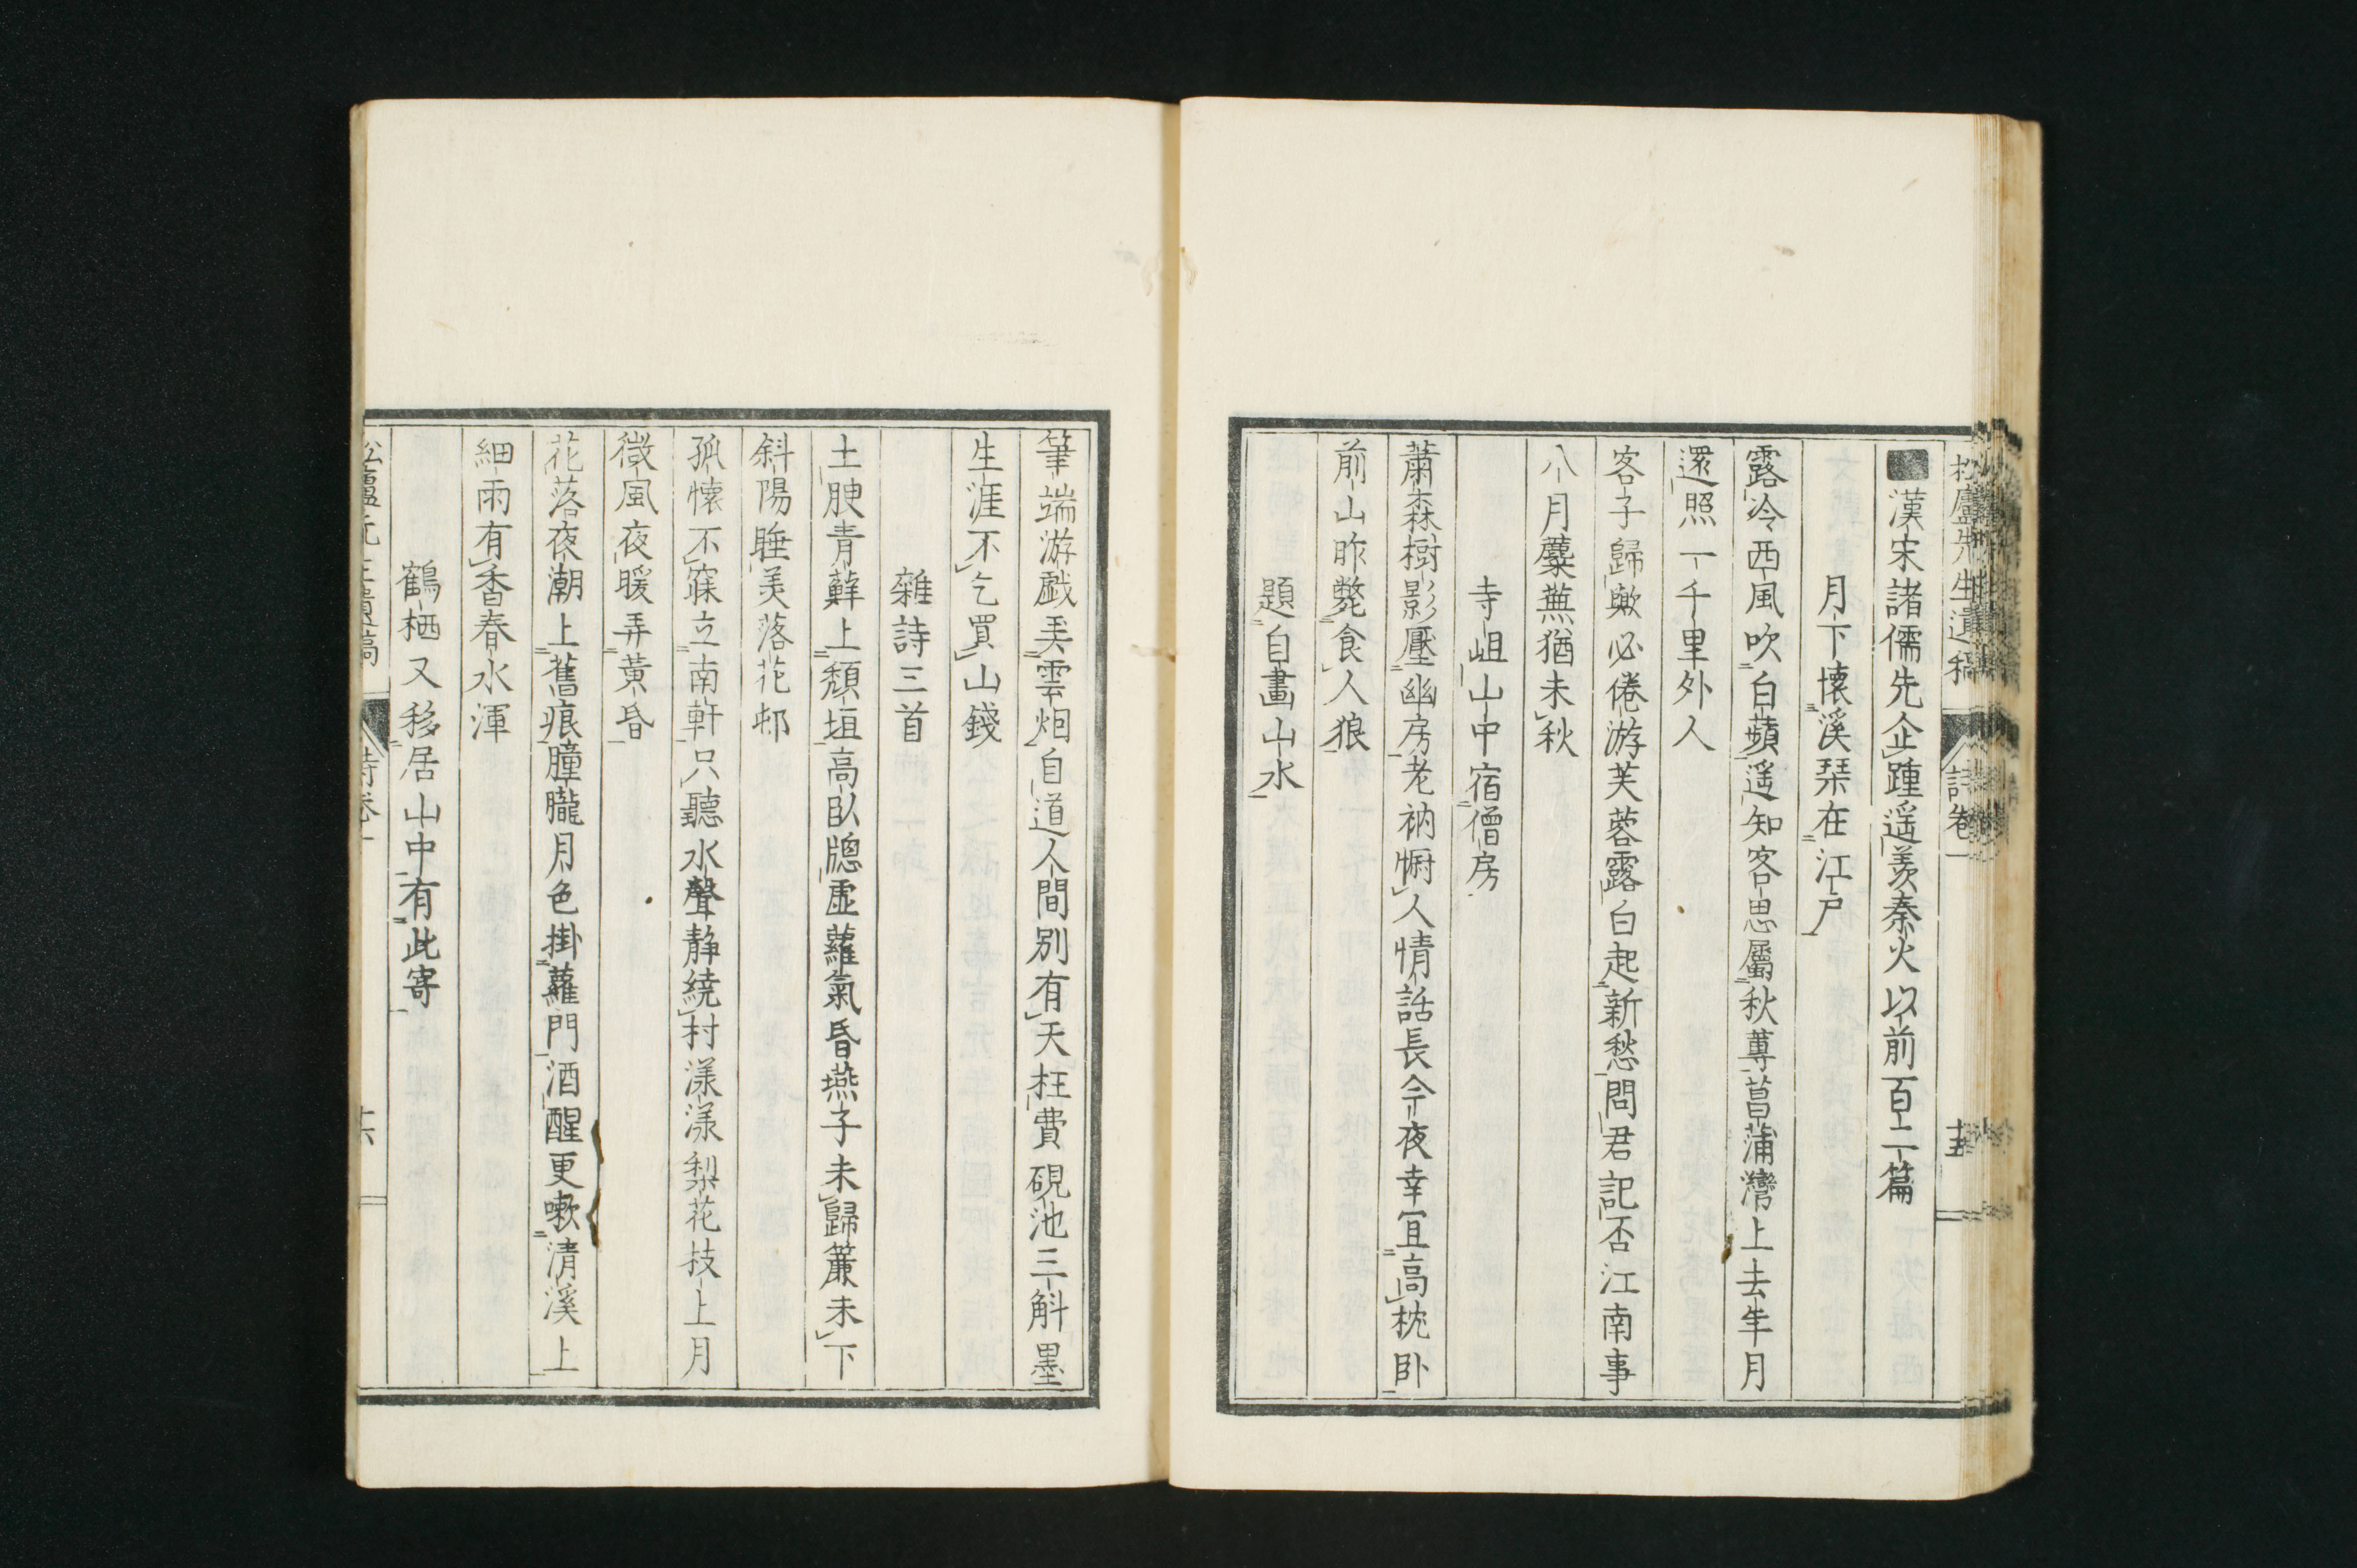 松廬先生遺稿 詩卷一 十五
漢宋諸儒先企踵遥羨秦火以前百二篇
月下懐溪琹在江戸
露冷西風吹白蘋遥知客思屬秋蓴菖蒲灣上去年月
還照一千里外人
客子歸歟必倦游芙蓉露白起新愁問君記否江南事
八月蘪蕪猶未秋
寺岨山中宿僧房
蕭森樹影壓幽房老衲惻人情話長今夜幸宜高枕卧
前山昨斃食人狼
題自畫山水
筆端游戯美雲烟自道人間別有天枉費硯池三斛墨
生涯不乞買山錢
雜詩三首
土腴青蘚上頽垣高臥牕虚蘿氣昏燕子未歸簾未下
斜陽睡美落花邨
孤懐不寐立南軒只聽水聲静繞村漾漾梨花枝上月
微風夜暖弄黄昏
花落夜潮上舊痕朣朧月色掛蘿門酒醒更嗽清溪上
細雨有香春水渾
鶴栖又移居山中有此寄
松廬先生遺稿 詩卷一 十六